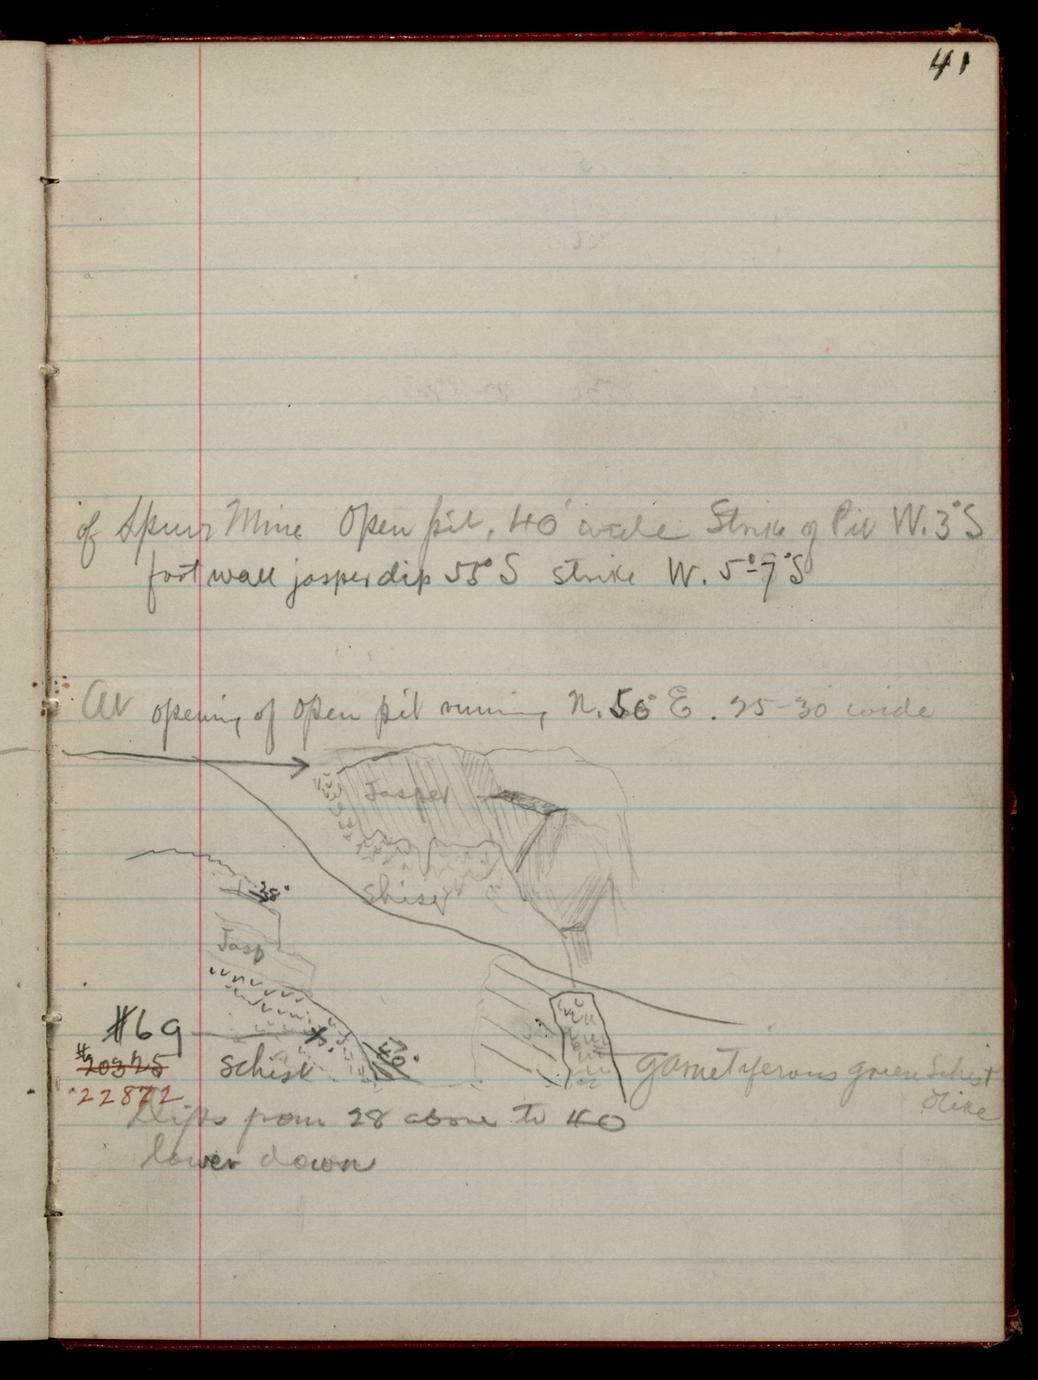 41
of Spurr Mine Open pit, 40' wide Strike of Pit W. 3° S
foot wall jasper dip 55° S strike W. 5°-7° S
At opening of open pit running N. 50° E. 25-30 wide
Jasper
Shist
38°
Jasp
#69
40°
#20375
schist
garnetiferous green Schist
dike
22872
Dips from 28 above to 40
lower down